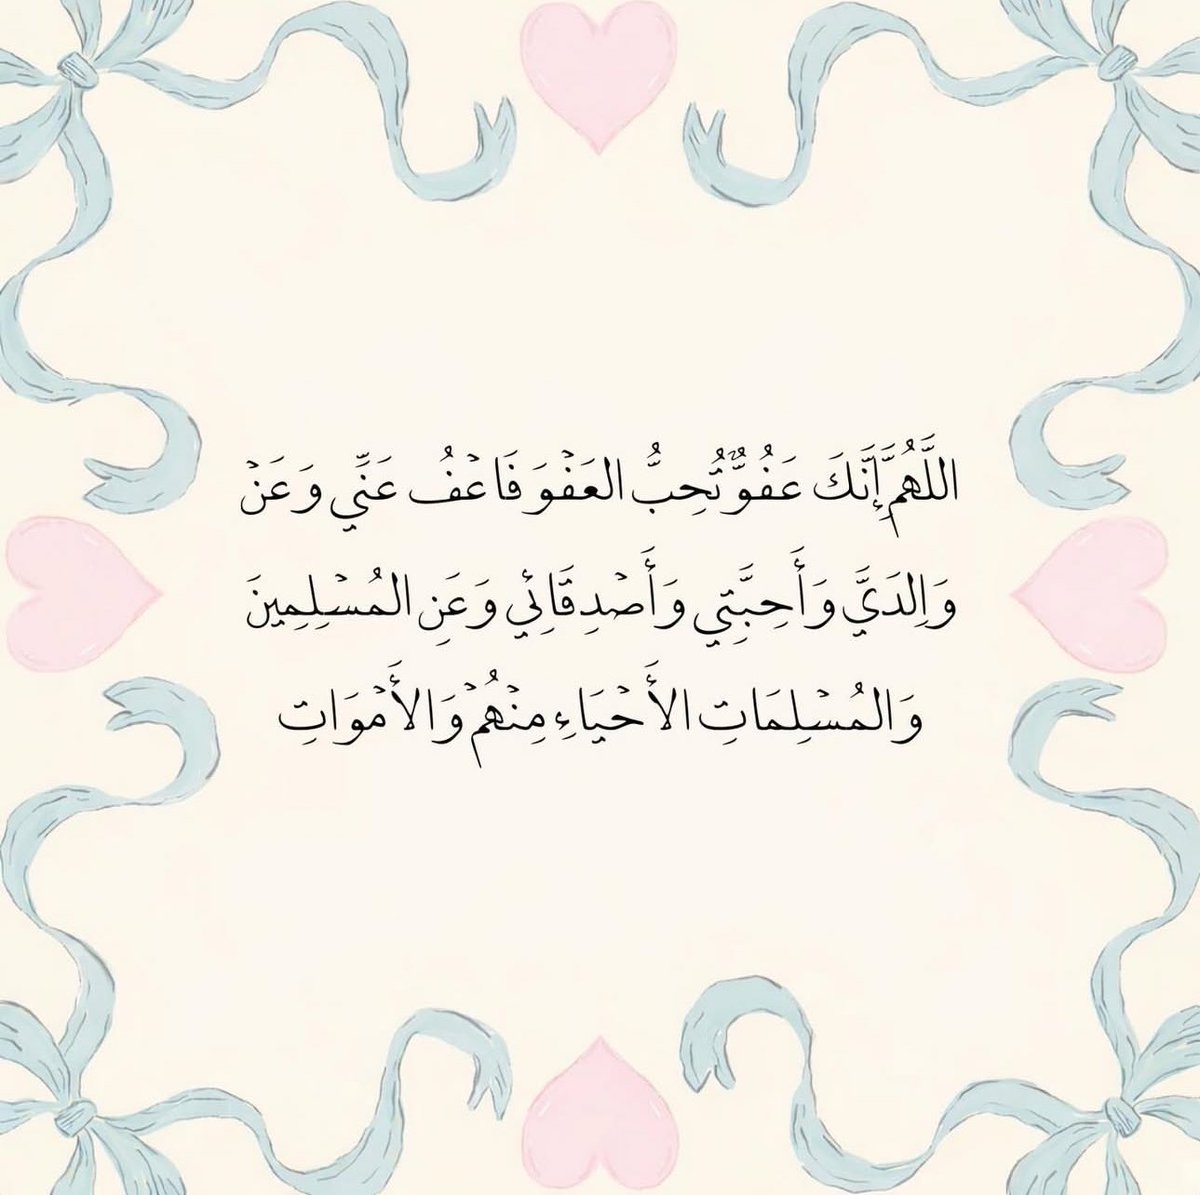 اللَّهُمَّ إِنَّكَ عَفُوٌّ تُحِبُّ العَفْوَ فَاعْفُ عَنِّي وَعَنْ
وَالِدَيَّ وَأَحِبَّتِي وَأَصْدِقَائِي وَعَنِ المُسْلِمِينَ
وَالمُسْلِمَاتِ الأَحْيَاءِ مِنْهُمْ وَالأَمْوَاتِ